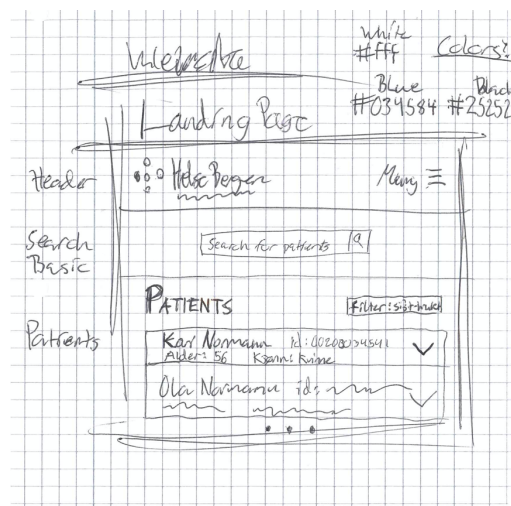 White
#fff
Colors:
Blue
#034584
Black
#25252
Landing Page
Header
Helse Bergen
Meny
Search
Basic
Search for patients
PATIENTS
Filter: sist brukt
Patients
Kari Normann id: 00208034541
Alder: 56 Kjønn: Kvinne
Ola Normann id: